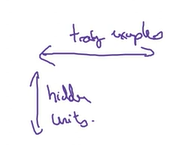 training examples
hidden
units.